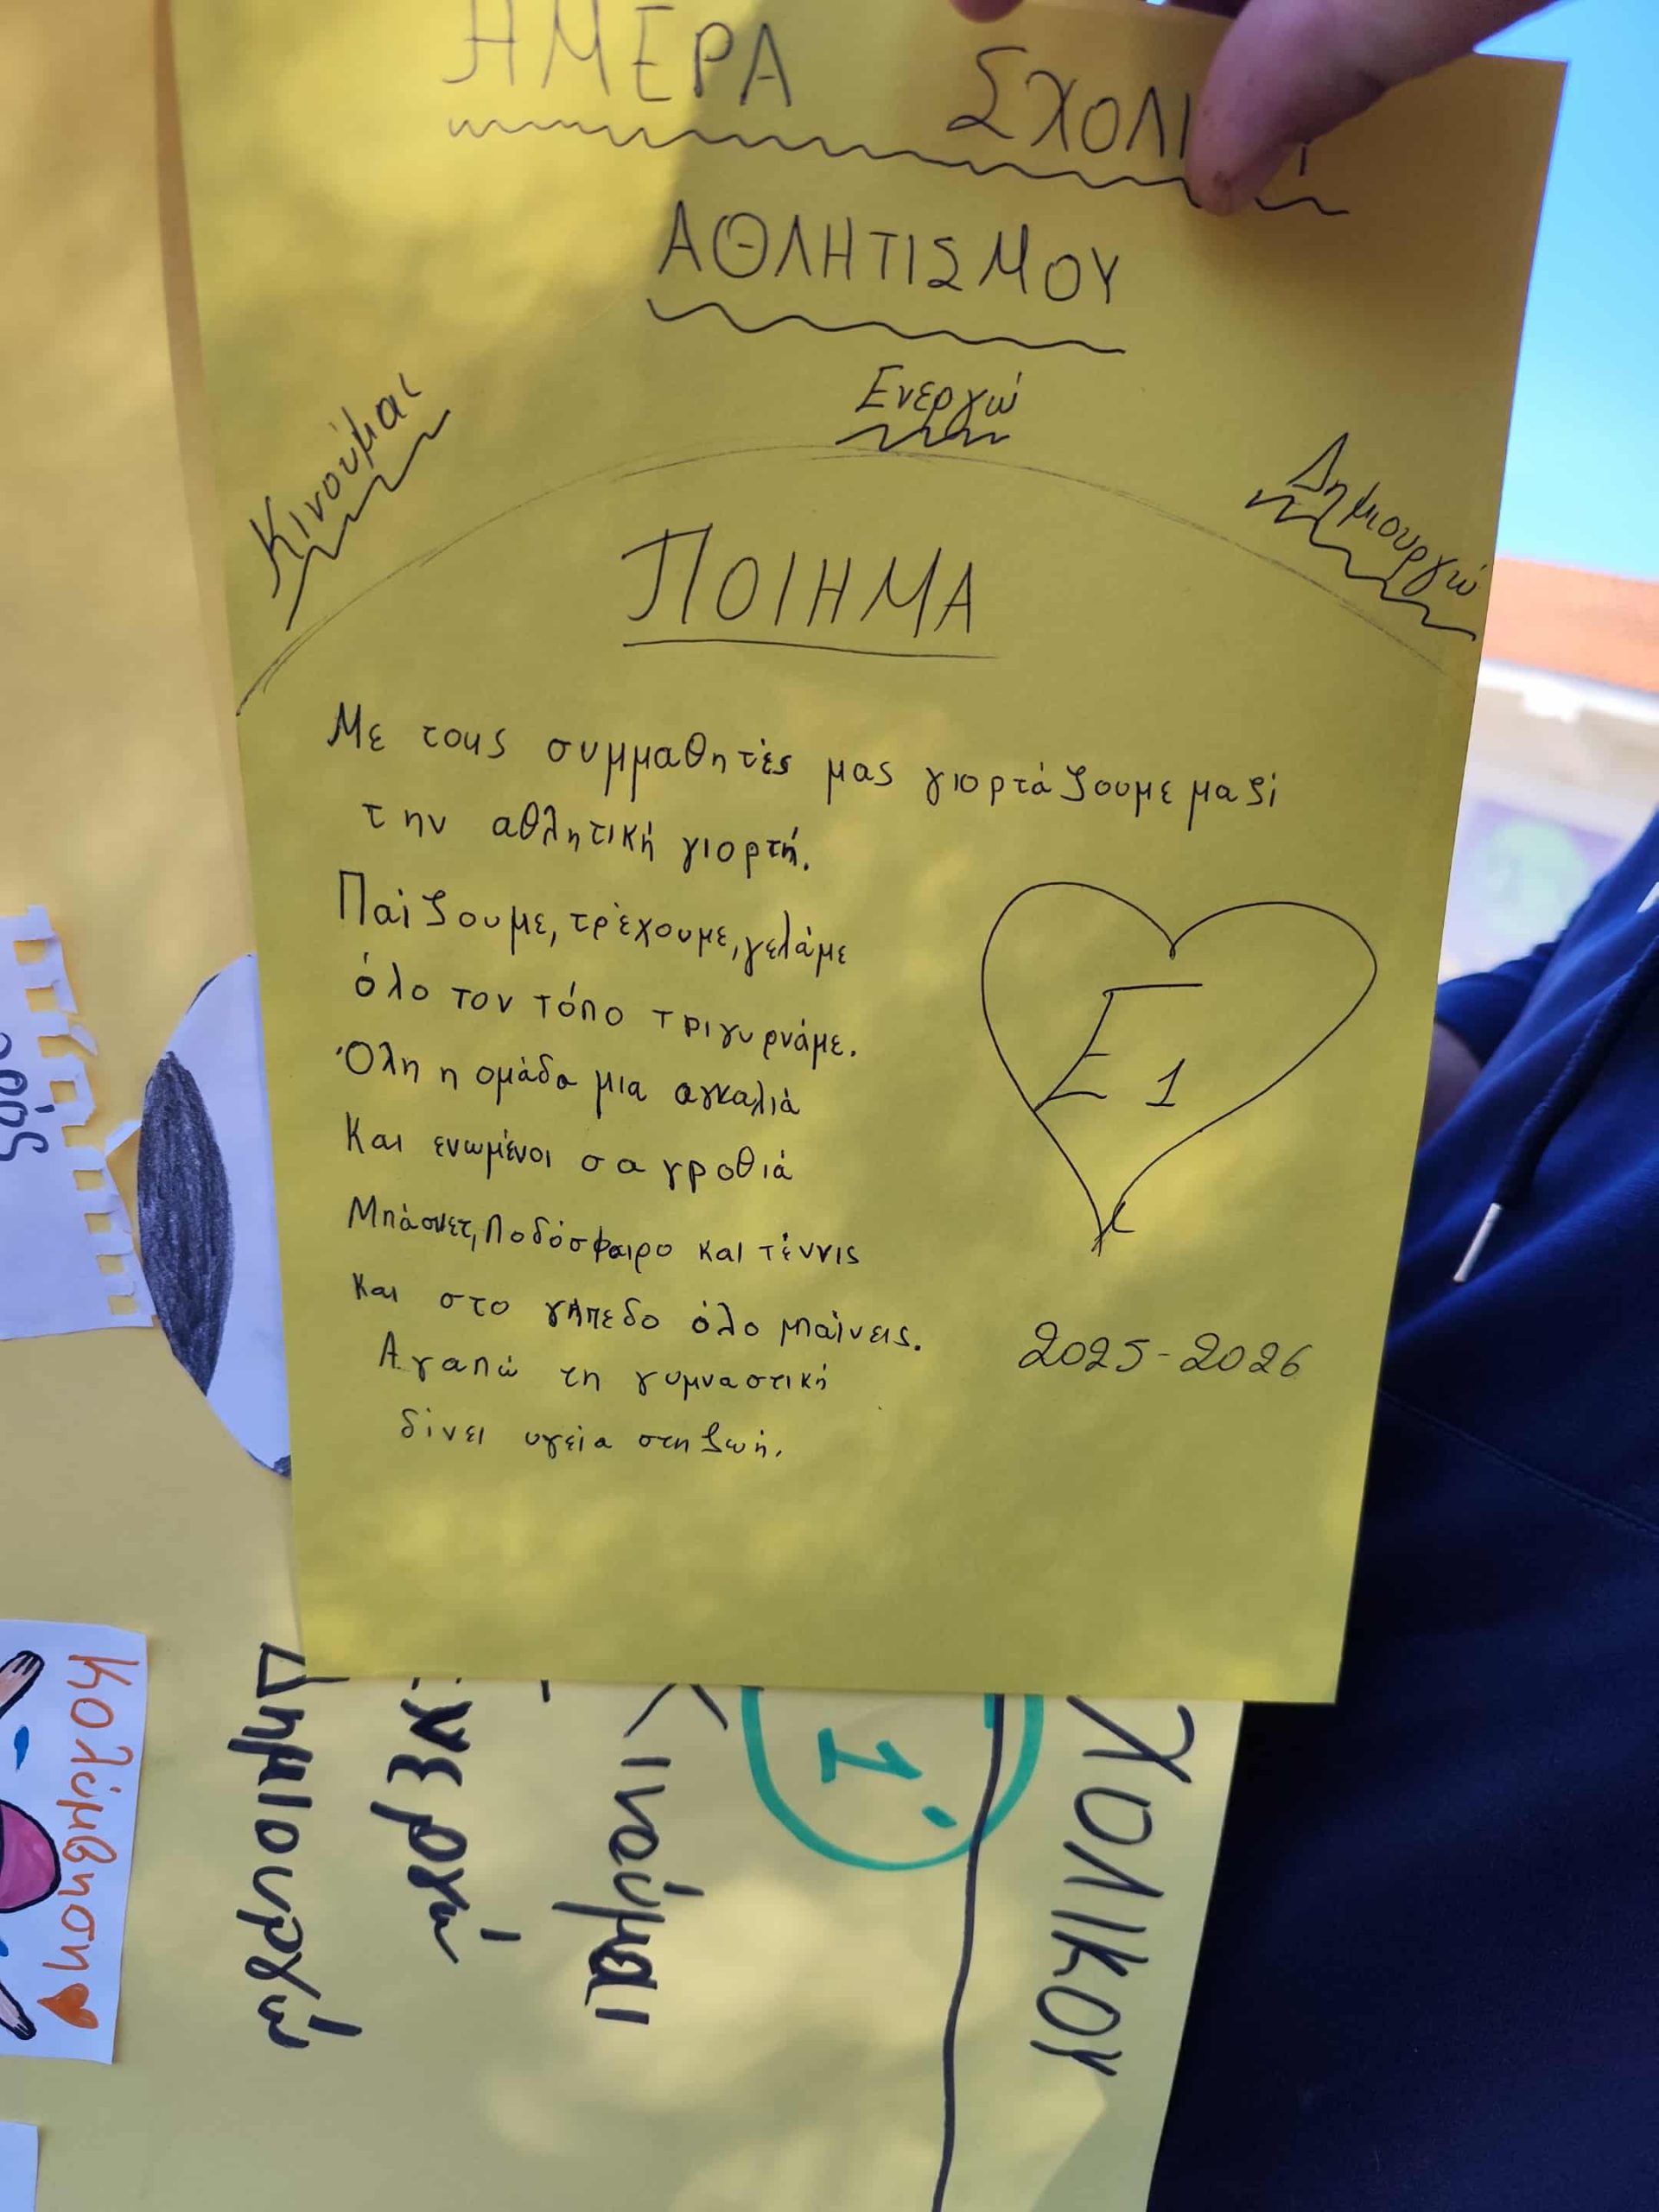 ΗΜΕΡΑ ΣΧΟΛΙ
ΑΘΛΗΤΙΣΜΟΥ
Κινούμαι
Ενεργώ
Δημιουργώ
ΠΟΙΗΜΑ
Με τους συμμαθητές μας γιορτάζουμε μαζί
την αθλητική γιορτή.
Παίζουμε, τρέχουμε, γελάμε
όλο τον τόπο τριγυρνάμε.
Όλη η ομάδα μια αγκαλιά
Και ενωμένοι σα γροθιά
Μπάσκετ, Ποδόσφαιρο και τέννις
και στο γήπεδο όλο μπαίνεις.
Αγαπώ τη γυμναστική
δίνει υγεία στη ζωή.
Ε1
2025-2026
ΧΟΛΙΚΟΥ
1
Κινούμαι
Ενεργώ
Δημιουργώ
Κολύμβηση